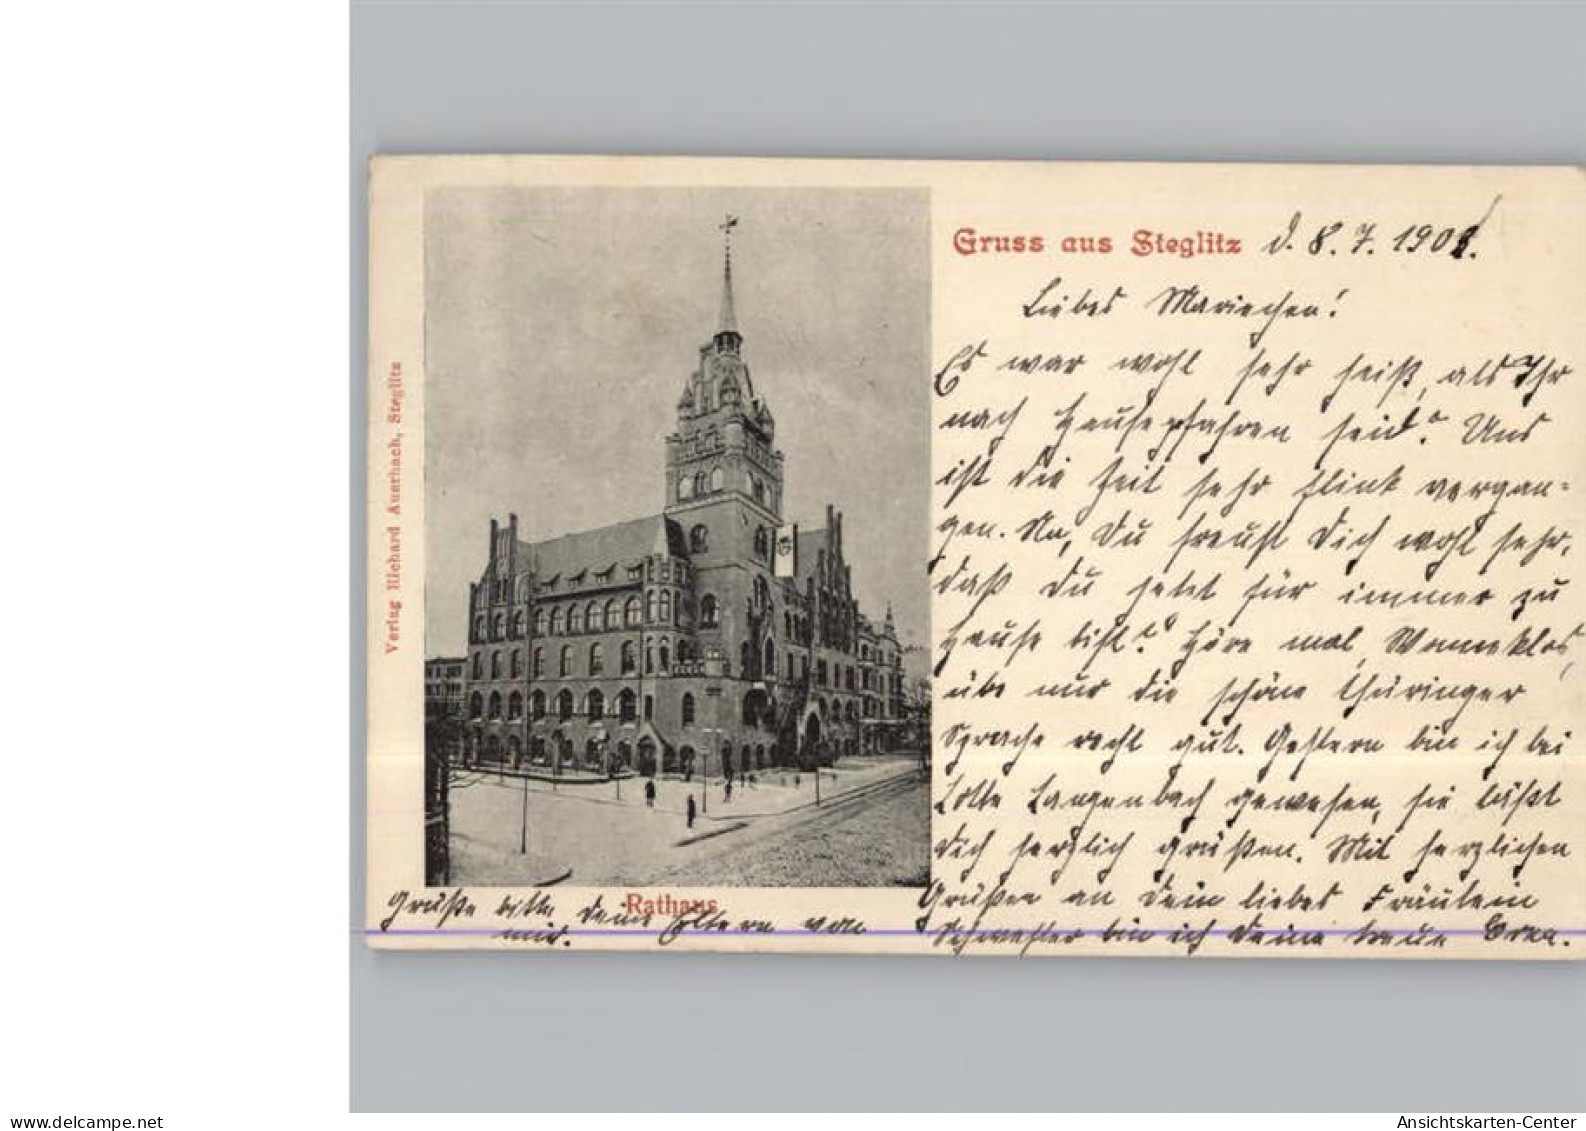 Gruss aus Steglitz d. 8. 7. 1901.
Liebes Mariechen!
Es war wohl sehr heiß, als Ihr
nach Hause gefahren seid? Uns
ist die Zeit sehr flink vergan=
gen. Na, Du freust Dich wohl sehr,
daß Du jetzt für immer zu
Hause bist? Höre mal,
übe nur die schöne Thüringer
Sprache recht gut. Gestern bin ich bei
Lotte Langenbach gewesen, sie läßt
Dich herzlich grüßen. Mit herzlichen
Grüßen an Dein liebes Fräulein
Schwester bin ich Deine treue
Grüße bitte Deine Eltern von
mir.
Rathaus
Verlag Richard Auerbach, Steglitz
www.delcampe.net
Ansichtskarten-Center